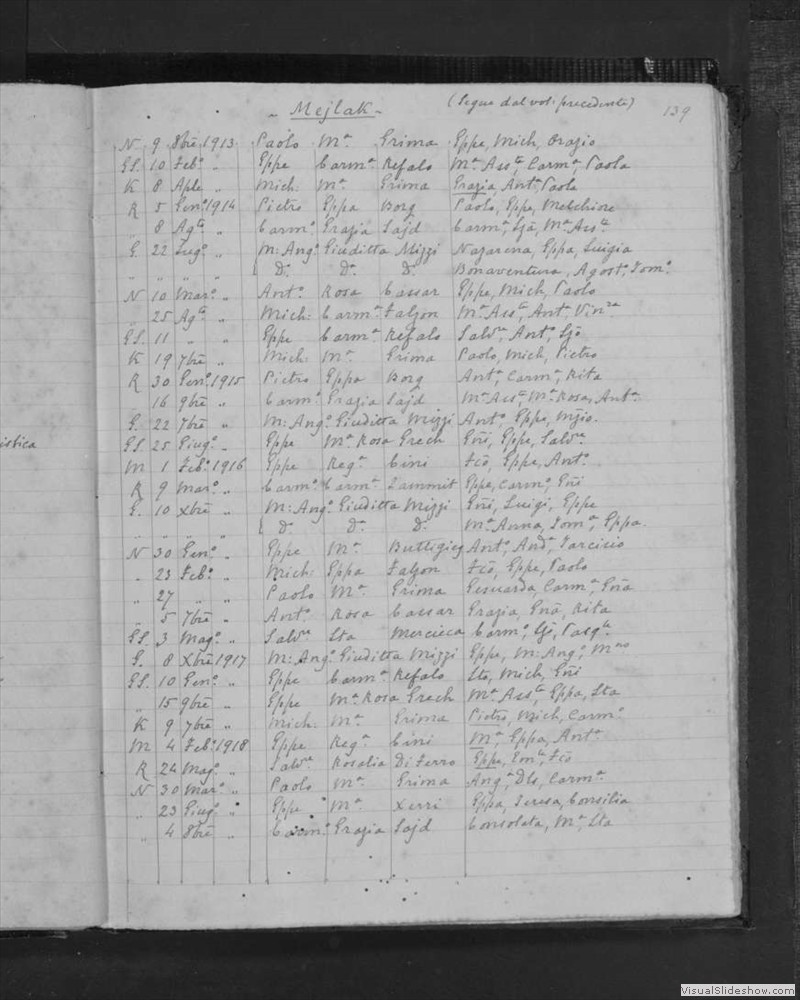 Mejlak (Segue dal vol: precedente) 139
N 9 8bre 1913 Paolo Ma Grima Gppe, Mich, Orazio
GS. 10 Febo " Gppe Carma Refalo Ma Assta, Carma, Paola
K 8 Aple " Mich: Ma Grima Grazia, Anta, Paola
R 5 Geno 1914 Pietro Gppa Borg Paolo, Gppe, Melchiore
" 8 Agto " Carmo Grazia Sajd
G. 22 " M: Ango Giuditta Mizzi Nazarena, Gppa, Luigia
" " " " Do Do Do Bonaventura, Agosto, Tomo
N 10 Maro " Anto Rosa Cassar Gppe, Mich, Paolo
" 25 Agto " Mich: Carma Falzon Ma Assta, Anta, Vinza
GS. 11 " " Gppe Carma Refalo
K 19 7bre " Mich: Ma Grima Paolo, Mich, Pietro
R 30 Geno 1915 Pietro Gppa Borg Anta, Carma, Rita
16 9bre " Carmo Grazia Sajd Ma Assta, Ma Rosa, Anta
G. 22 7bre " M: Ango Giuditta Mizzi Anto, Gppe,
istica
GS. 25 Giugo " Gppe Ma Rosa Grech
M 1 Febo 1916 Gppe Rega Cini Fco, Gppe, Anto
R 9 Maro " Carmo Carma Sammit Gppe, Carmo,
G. 10 Xbre " M: Ango Giuditta Mizzi Luigi, Gppe
" " " " Do Do Do Ma Anna, Toma, Gppa
N 30 Geno " Gppe Ma Buttigieg Tarcisio
" 23 Febo " Mich: Gppa Falzon Fco, Gppe, Paolo
" 27 " " Paolo Ma Grima Gesuarda, Carma,
" 5 7bre " Anto Rosa Cassar Grazia, Rita
GS. 3 Mago " Salvre Sta Mercieca
G. 8 Xbre 1917 M: Ango Giuditta Mizzi Gppe, M: Ango,
GS. 10 Geno " Gppe Carma Refalo Mich,
" 15 9bre " Gppe Ma Rosa Grech Ma Assta, Gppa, Sta
K 9 7bre " Mich: Ma Grima Pietro, Mich, Carmo
M 4 Febo 1918 Gppe Rega Cini Ma, Gppa, Anta
R 24 Mago " Salvre Rosalia Di Ferro Gppe, Fco
N 30 Maro " Paolo Ma Grima Anga, Dls, Carma
" 23 Giugo " Gppe Ma Xerri Gppa, Teresa, Consilia
" 4 8bre " Carmo Grazia Sajd Consolata, Ma, Sta
VisualSlideshow.com